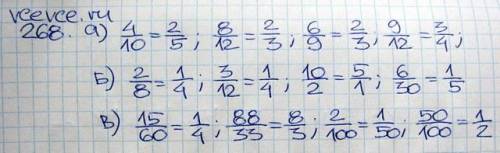 vcevce.ru
268. а) 4/10 = 2/5; 8/12 = 2/3; 6/9 = 2/3, 9/12 = 3/4;
Б) 2/8 = 1/4; 3/12 = 1/4; 10/2 = 5/1; 6/30 = 1/5
В) 15/60 = 1/4; 88/33 = 8/3; 2/100 = 1/50; 50/100 = 1/2